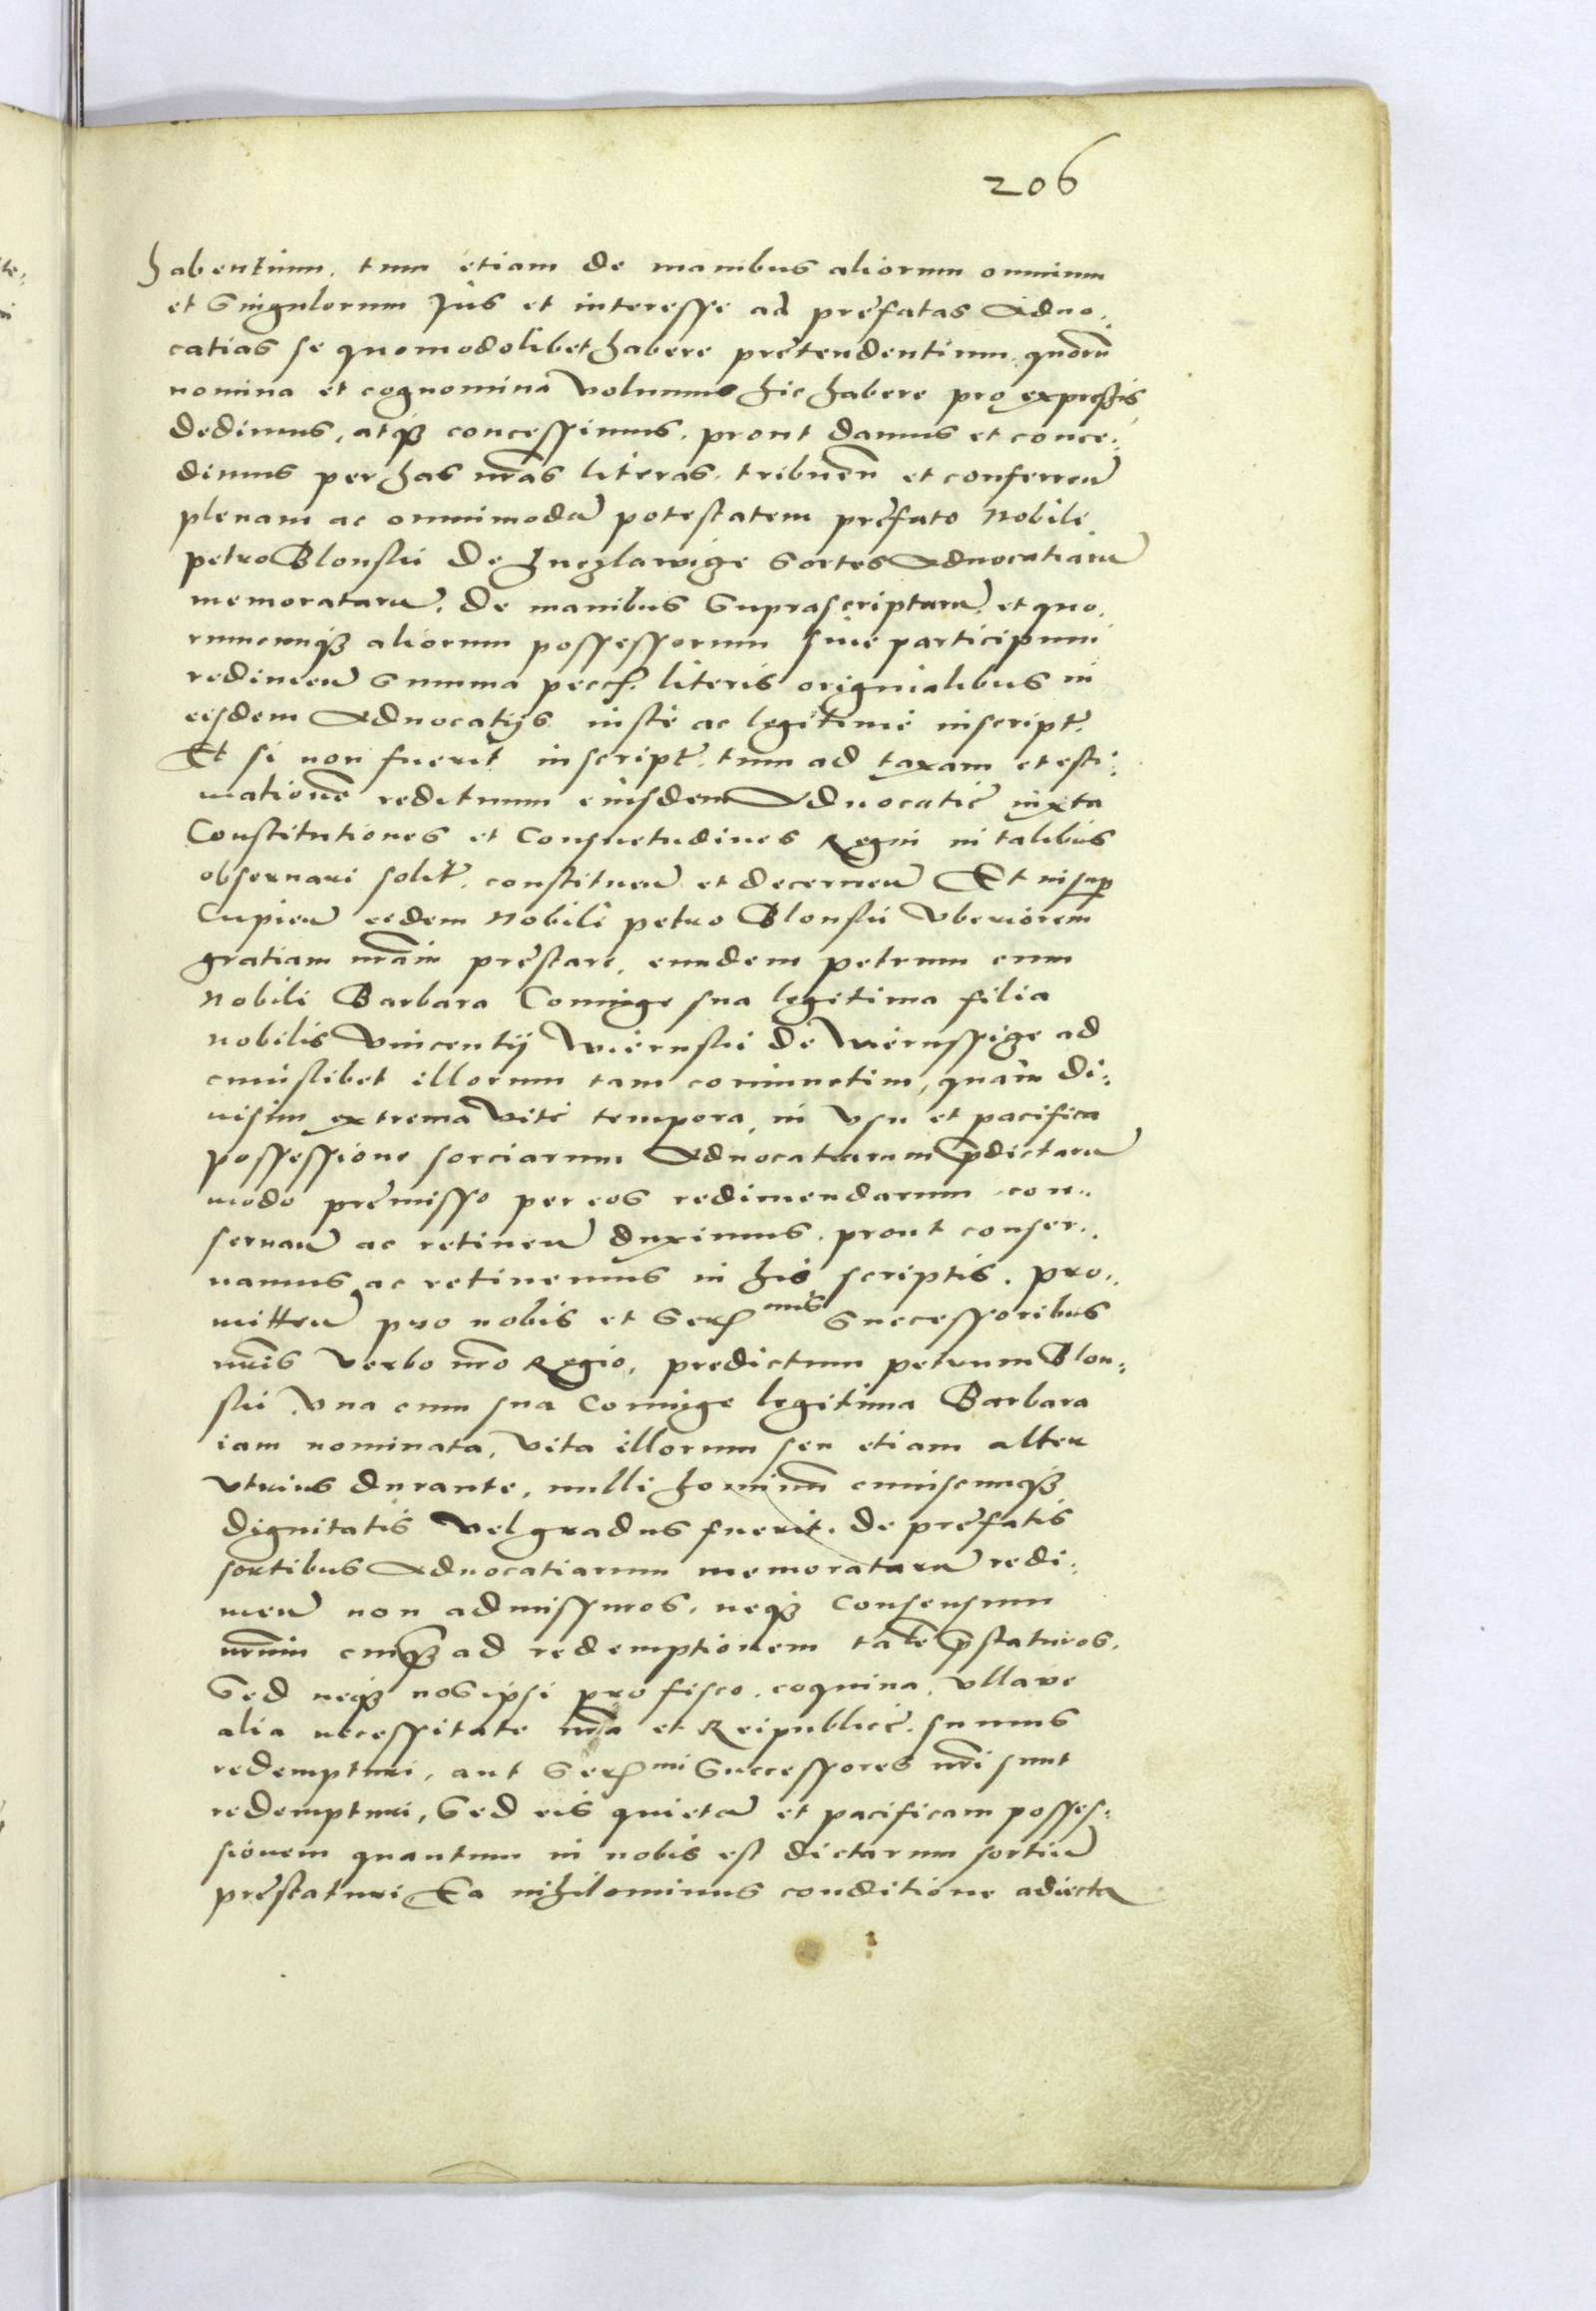 206
habentium. tum etiam de manibus aliorum omnium
et Singulorum Jus et interesse ad prefatas Aduo:
catias se quomodolibet habere pretendentium. quorũ
nomina et cognomina volumus hic habere pro expressis
dedimus, atq₃ concessimus. prout damus et conce:
dimus per has nr̃as literas. tribuen̄ et conferren̄
plenam ac omnimodã potestatem prefato Nobili
petro Blonski de Sortes Aduocatiarũ
memoratarũ. de manibus Suprascriptarũ et quo:
rumcunq₃ aliorum possessorum siue participum
redimen̄ Summa literis originalibus in
eisdem Aduocatijs iuste ac legitime inscript.
Et si non fuerit inscript. tum ad taxam et esti:
mationẽ redituum eiusdem Aduocatie iuxta
Constitutiones et Consuetudines Regni in talibus
obseruari solit. constituen̄ et decernen̄ Et insup
Cupien̄ eidem Nobili petro Blonski vberiorem
gratiam nr̃am prestare, eundem petrum cum
Nobili Barbara Coniuge sua legitima filia
nobilis Vincentij Wiernski de ad
cuiuslibet illorum tam coniunctim, quam di:
uisim extrema vite tempora, in vsu et pacifica
possessione sorciarum Aduocatiarum p̃dictarũ
modo premisso per eos redimendarum con:
seruan̄ ac retinen̄ duximus. prout conser:
uamus ac retinemus in his scriptis. pro:
mitten̄ pro nobis et Ser mis Successoribus
nr̃is verbo nr̃o Regio, predictum petrum Blon:
ski vna cum sua Coniuge legitima Barbara
iam nominata, vita illorum seu etiam alter
vtrius durante, nulli hominũ cuiuscunq₃
dignitatis vel gradus fuerit. de prefatis
sortibus Aduocatiarum memoratarũ redi:
men̄ non admissuros, neq₃ Consensum
nr̃um cuiq₃ ad redemptionem talẽ p̃staturos.
Sed neq₃ nos ipsi pro fisco, coquina, vllave
alia necessitate nr̃a et Reipublice. sumus
redempturi, aut Ser mi Successores nr̃i sunt
redempturi, Sed eis quietã et pacificam posses:
sionem quantum in nobis est dictarum sortiũ
prestaturi Ea nihilominus conditione adiecta